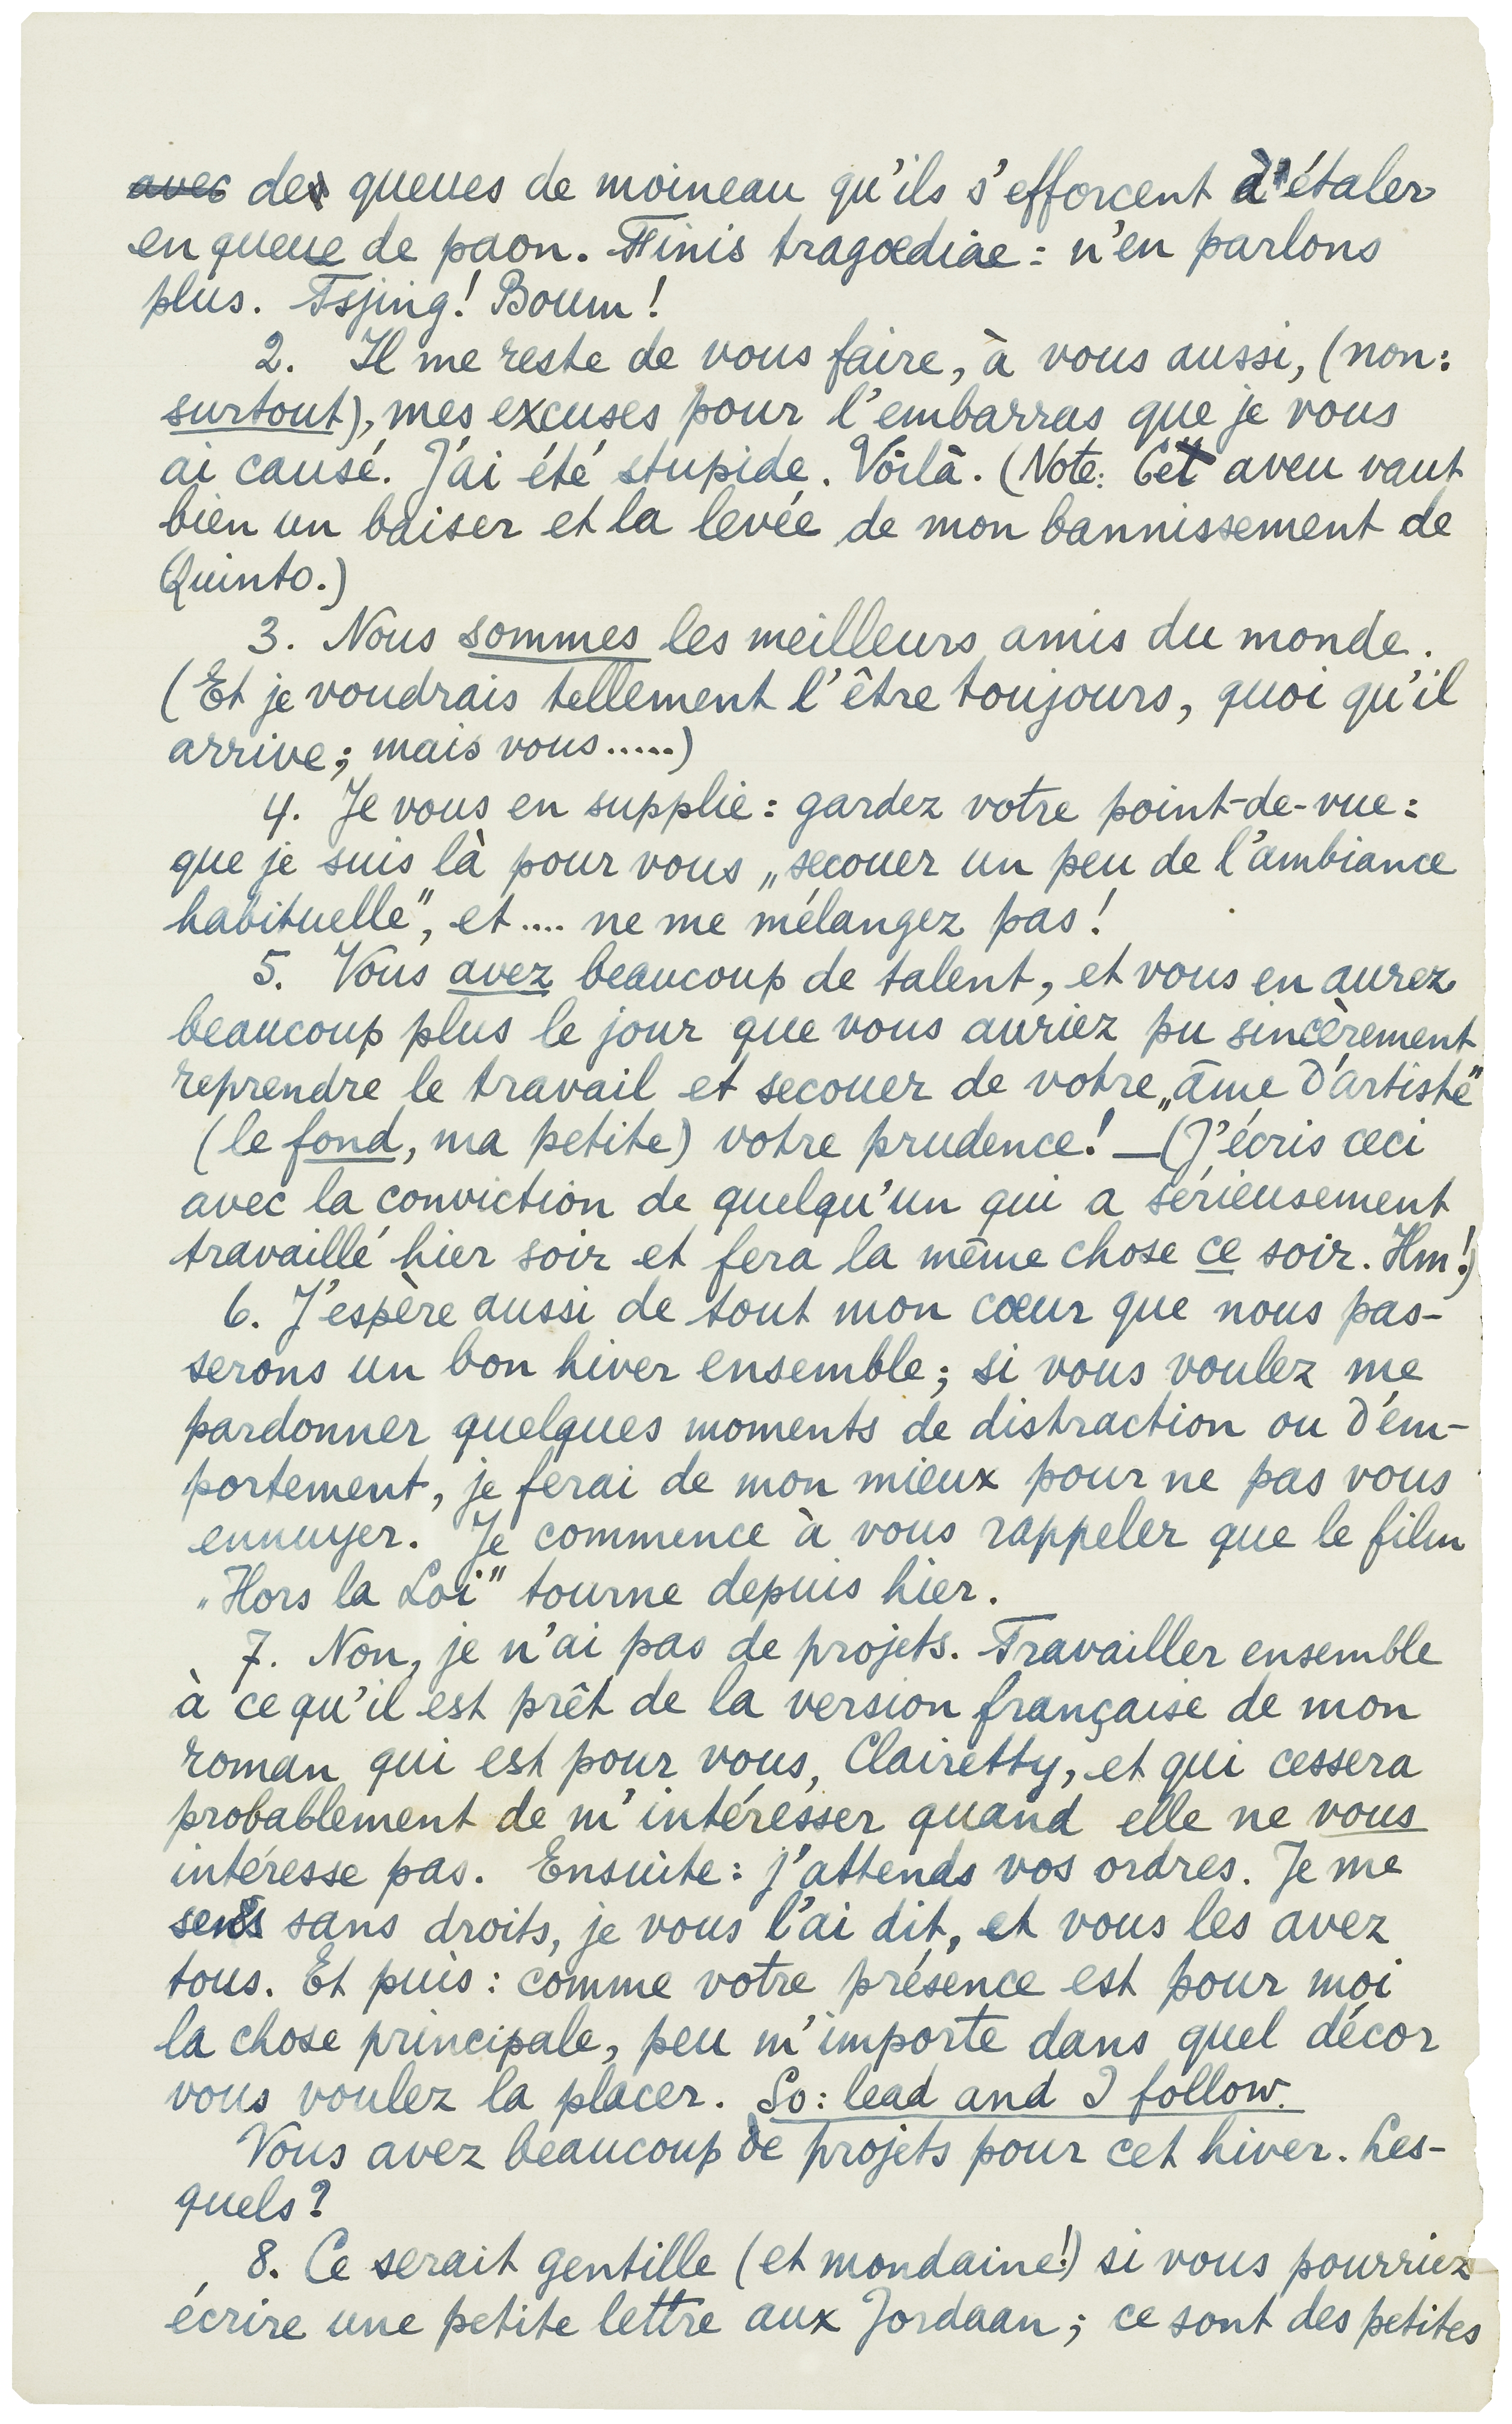 avec des queues de moineau qu'ils s'efforcent d'étaler
en queue de paon. Finis tragœdiae: n'en parlons
plus. Tsjing! Boum!
2. Il me reste de vous faire, à vous aussi, (non:
surtout), mes excuses pour l'embarras que je vous
ai causé. J'ai été stupide. Voilà. (Note: Cet aveu vaut
bien un baiser et la levée de mon bannissement de
Quinto.)
3. Nous sommes les meilleurs amis du monde.
(Et je voudrais tellement l'être toujours, quoi qu'il
arrive; mais vous.....)
4. Je vous en supplie: gardez votre point-de-vue:
que je suis là pour vous „secouer un peu de l'ambiance
habituelle", et.... ne me mélangez pas!
5. Vous avez beaucoup de talent, et vous en aurez
beaucoup plus le jour que vous auriez pu sincèrement
reprendre le travail et secouer de votre „âme d'artiste"
(le fond, ma petite) votre prudence! — (J'écris ceci
avec la conviction de quelqu'un qui a sérieusement
travaillé hier soir et fera la même chose ce soir. Hm!)
6. J'espère aussi de tout mon cœur que nous pas-
serons un bon hiver ensemble; si vous voulez me
pardonner quelques moments de distraction ou d'em-
portement, je ferai de mon mieux pour ne pas vous
ennuyer. Je commence à vous rappeler que le film
„Hors la Loi" tourne depuis hier.
7. Non, je n'ai pas de projets. Travailler ensemble
à ce qu'il est prêt de la version française de mon
roman qui est pour vous, Clairetty, et qui cessera
probablement de m'intéresser quand elle ne vous
intéresse pas. Ensuite: j'attends vos ordres. Je me
sens sans droits, je vous l'ai dit, et vous les avez
tous. Et puis: comme votre présence est pour moi
la chose principale, peu m'importe dans quel décor
vous voulez la placer. So: lead and I follow.
Vous avez beaucoup de projets pour cet hiver. Les-
quels?
8. Ce serait gentille (et mondaine!) si vous pourriez
écrire une petite lettre aux Jordaan; ce sont des petites